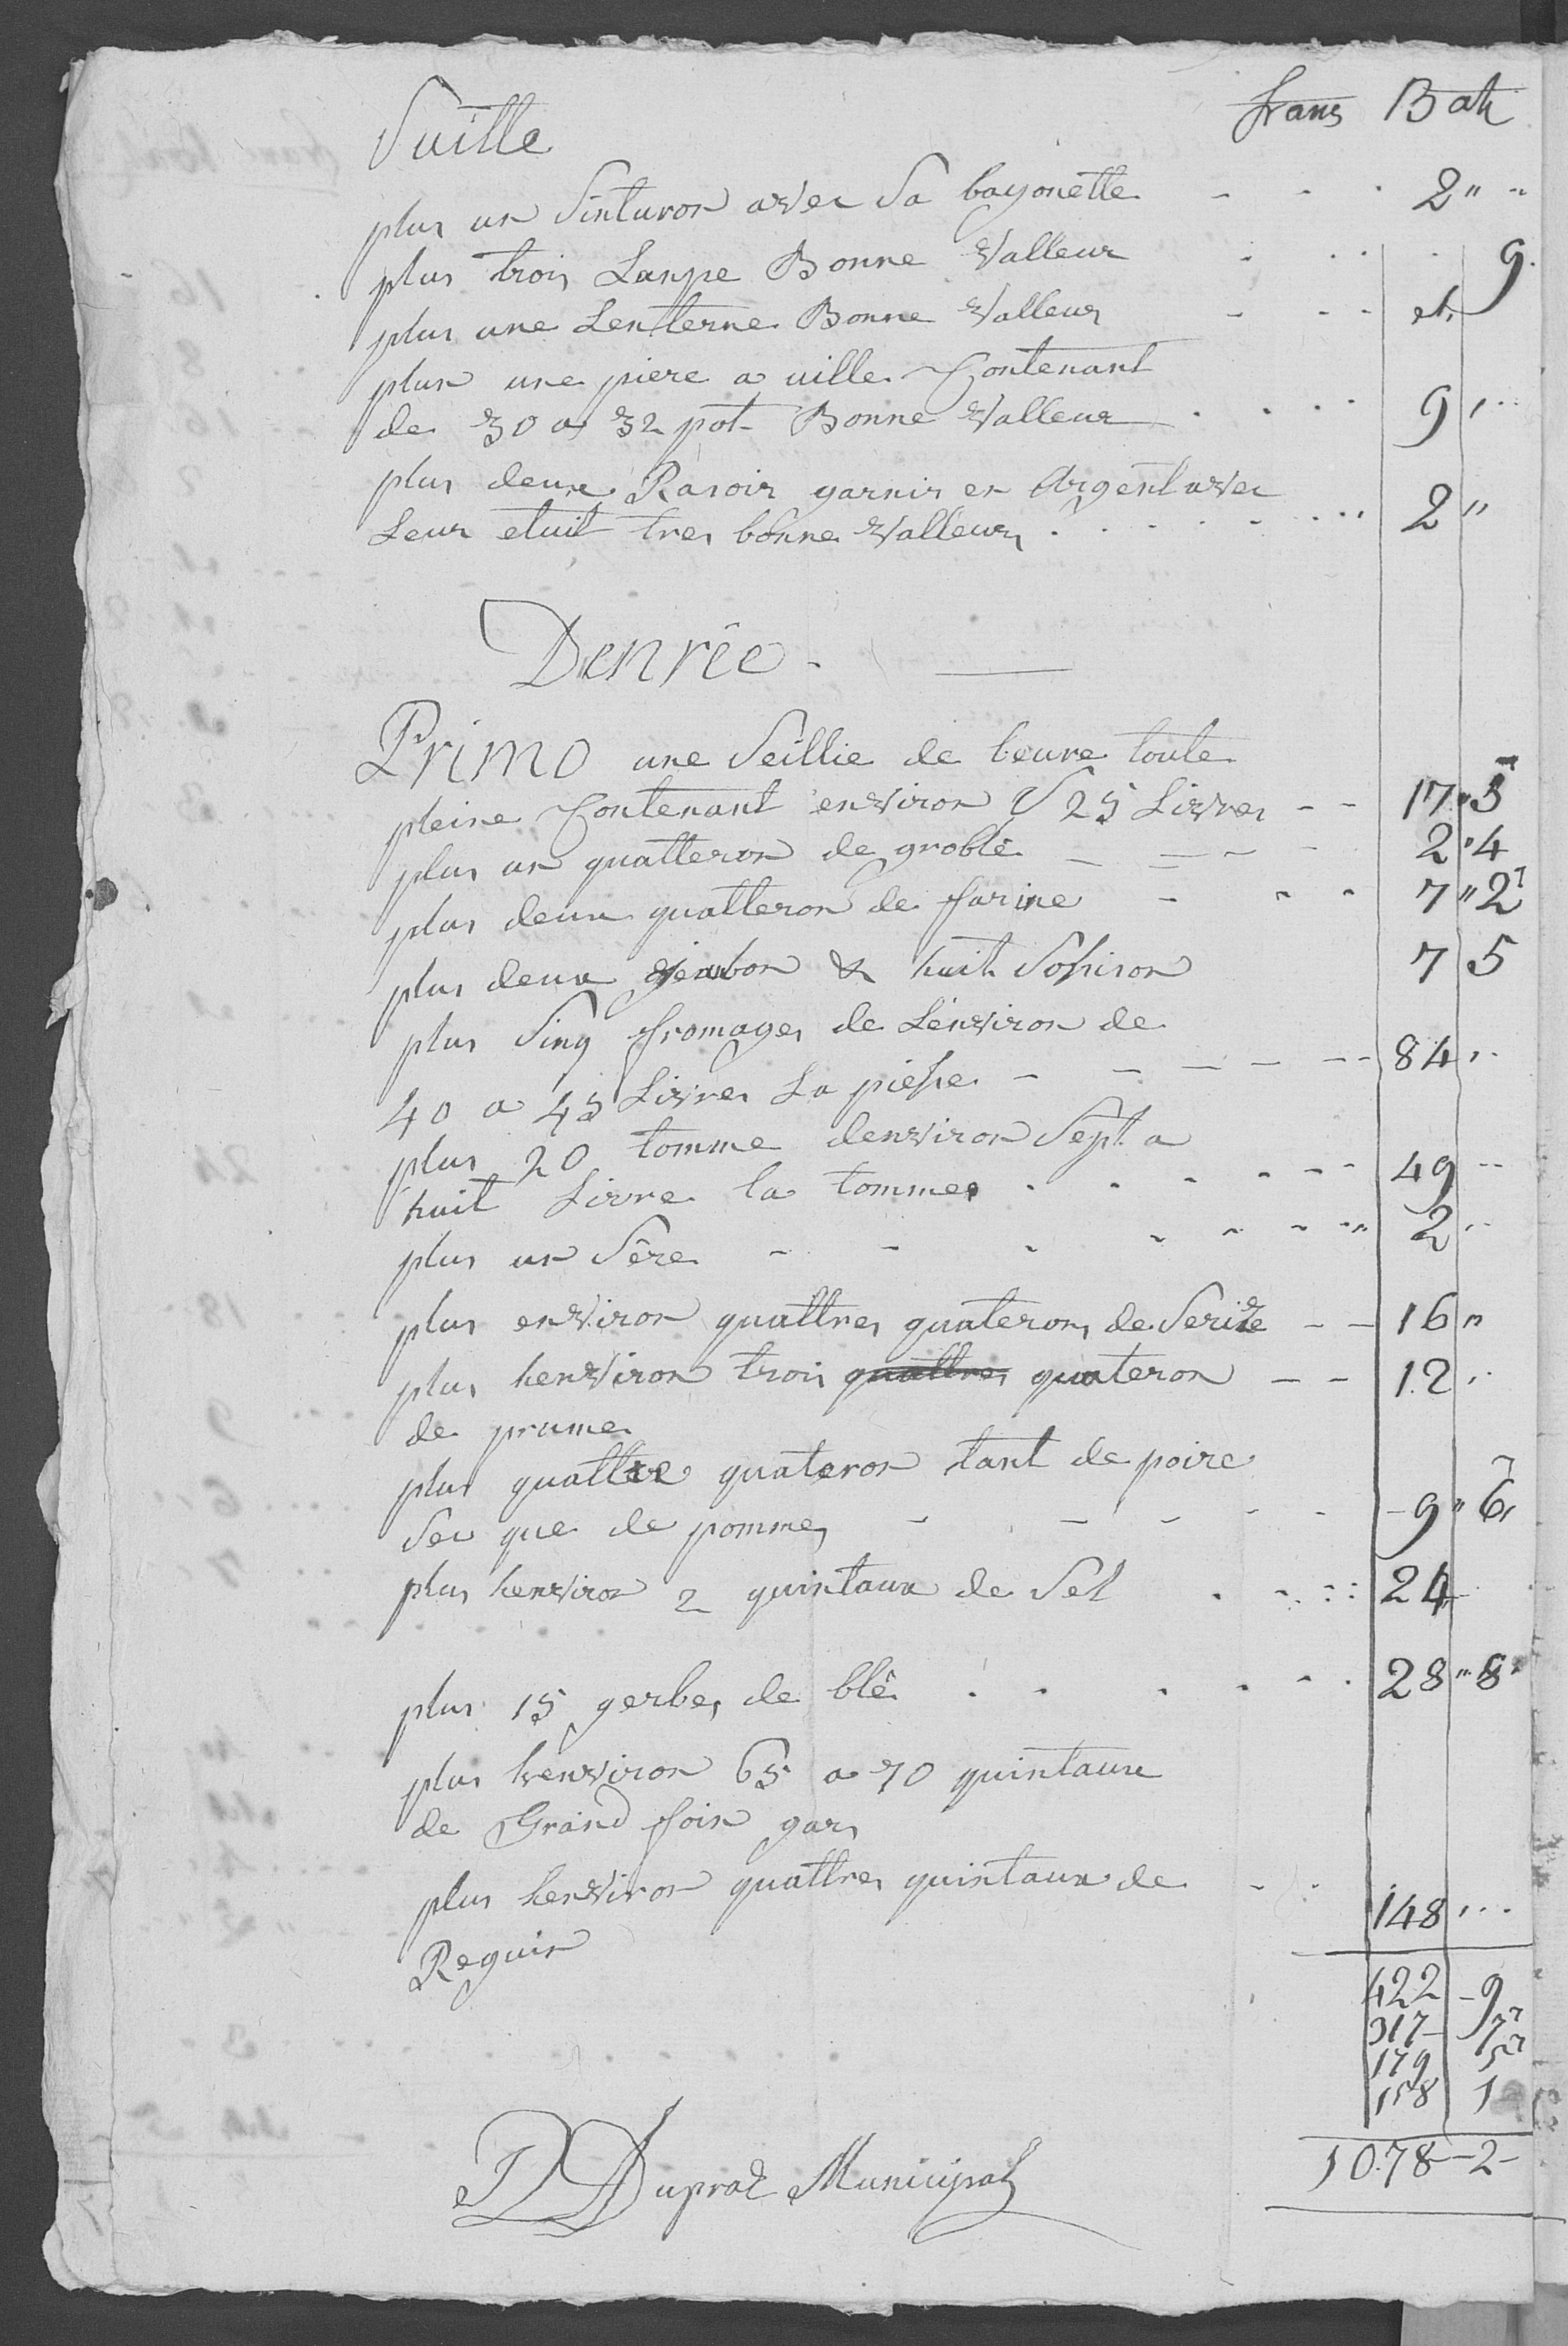 Suitte frans Batz
plus un Sinturon avec Sa bayonette - - - 2 " "
plus trois Lanpe Bonne Valleur 9
plus une Lenterne Bonne Valleur - - - et.
plus une piere a uille Contenant
de 30 a 32 pot Bonne Valleur 9
plus deux Rasoir garnis en Argent avec
Leur etuit tres bonne Valleur 2 "
Denrée
Primo une Seillie de beure toute
pleine Contenant environ 25 Livres - - 17 " 5
plus un quatteron de groblê 2 " 4
plus deux quatteron de farine 7 " 2
plus deux jenbon & huit Sossison 7 5
plus Sinq fromages de Lenviron de
40 a 45 Livres La piesse 84
plus 20 tomme denviron Sept a
huit Livre la tomme 49
plus un Sêre 2
plus environ quattres quaterons de Serize - - 16 "
plus henviron trois quattres quateron - - 12
de prume
plus quattre quateron tant de poire
Sec que de pommes 9 " 6
plus henviron 2 quintaux de Sel 24
plus 15 gerbes de blê 28 " 8
plus henviron 65 a 70 quintaux
de Grand foin gras
plus henviron quattres quintaux de 148
Reguin
422 - 9
317 - 7
179 5
158 1
1078 - 2 -
Dupraz Municipal